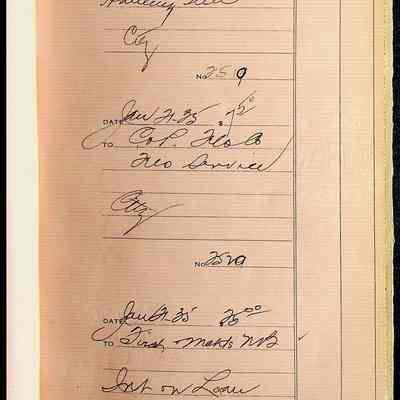 City
No 2519
DATE Jan 21-35 $ 7 50
TO Col. Flo Co
Flo Service
City
No 2520
DATE Jan 21-35 25 00
TO First Mchts N.B.
Int on Loan